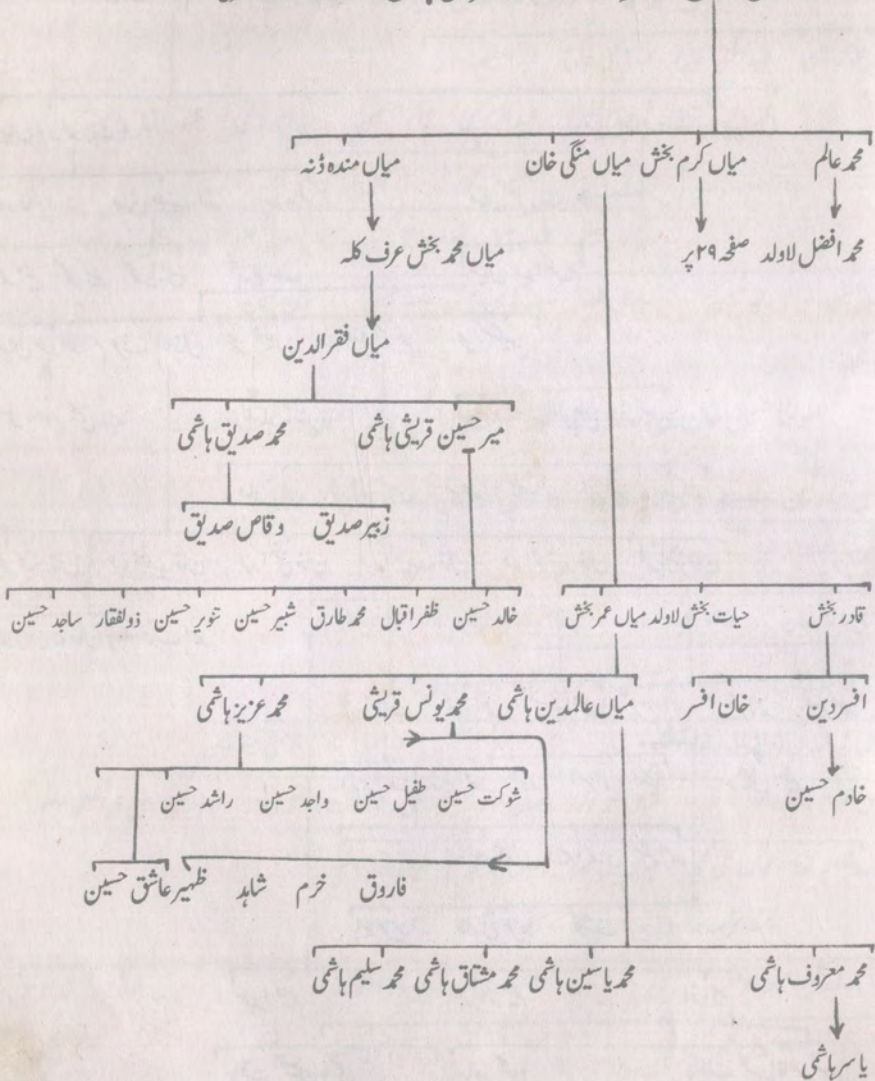 محمد عالم میاں کرم بخش میاں منگی خان میاں مندہ ڈنہ
محمد افضل لاولد صفحہ ۲۹ پر میاں محمد بخش عرف کلہ
میاں فقرالدین
میر حسین قریشی ہاشمی محمد صدیق ہاشمی
زبیر صدیق وقاص صدیق
قادر بخش حیات بخش لاولد میاں عمر بخش خالد حسین ظفر اقبال محمد طارق شبیر حسین تنویر حسین ذولفقار ساجد حسین
افسر دین خان افسر میاں عالمدین ہاشمی محمد یونس قریشی محمد عزیز ہاشمی
خادم حسین شوکت حسین طفیل حسین واجد حسین راشد حسین
فاروق خرم شاہد ظہیر عاشق حسین
محمد معروف ہاشمی محمد یاسین ہاشمی محمد مشتاق ہاشمی محمد سلیم ہاشمی
یاسر ہاشمی